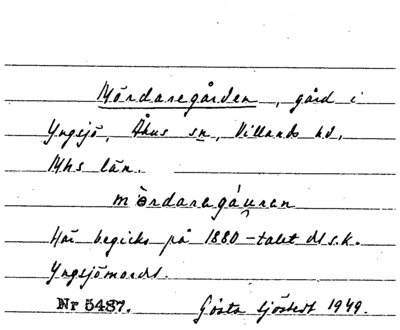 Mördaregården, gård i
Yngsjö, Åhus sn, Villands hd,
Mhs län.
mördaregáuren
Här begicks på 1880-talet det s.k.
Yngsjömordet.
Nr 5437. Gösta Sjöstedt 1949.